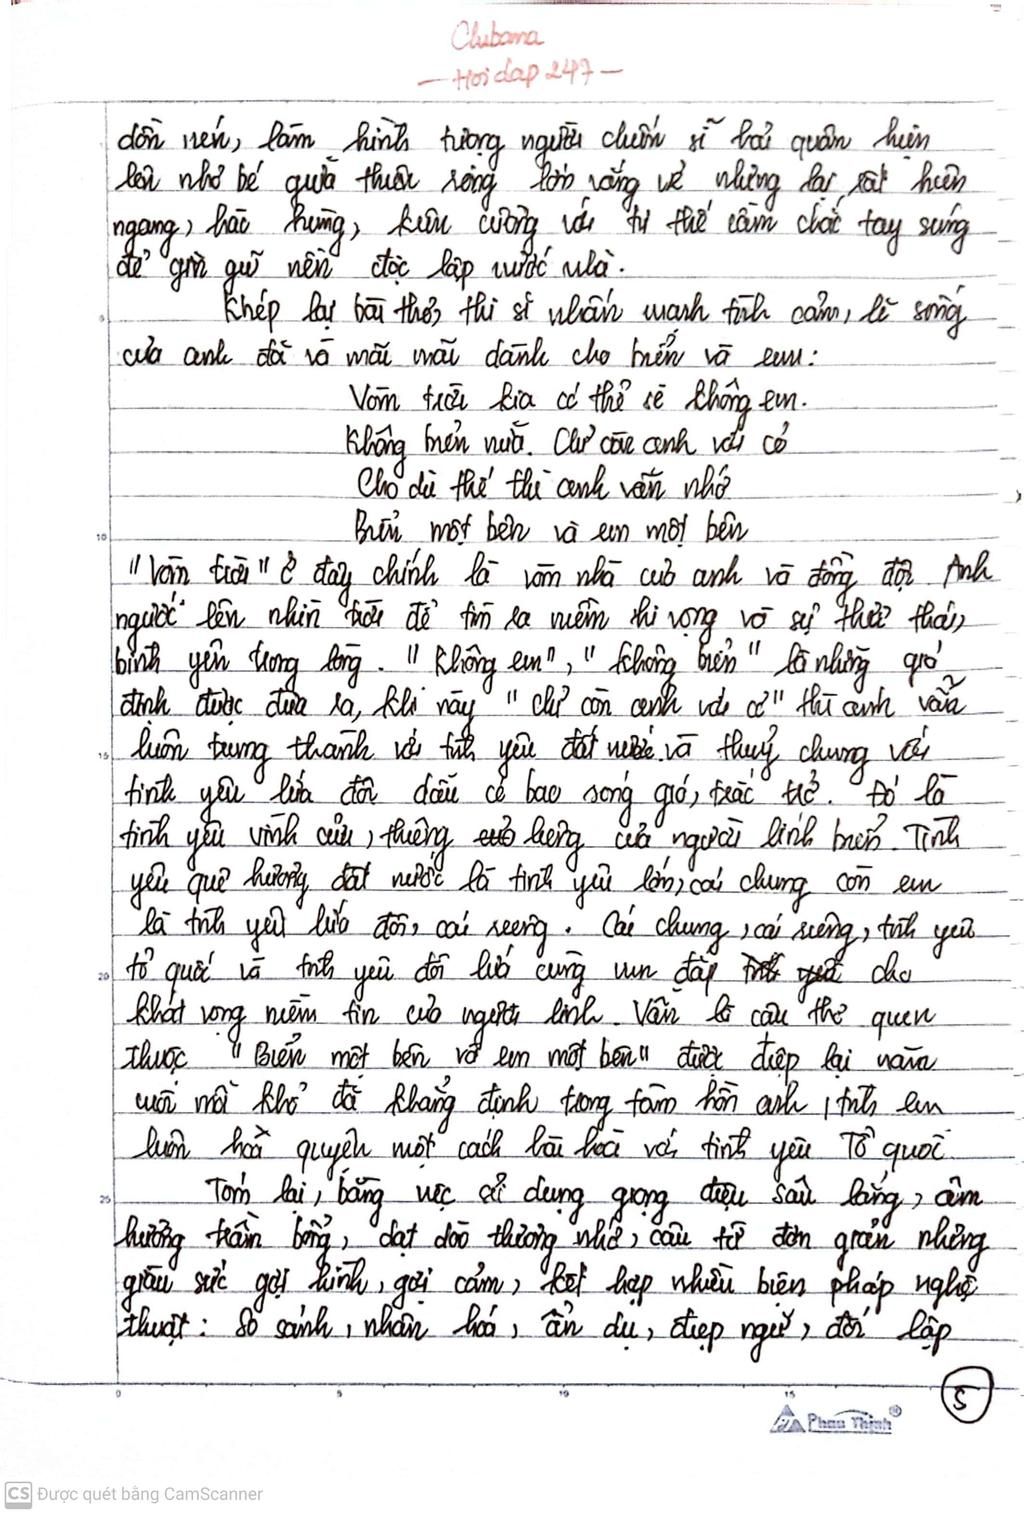 Clubama
— Hoidap 247 —
dồn nén, làm hình tượng người chiến sĩ hải quân hiện
lên nhỏ bé giữa thiên sóng lớn vắng vẻ nhưng lại rất hiên
ngang, hào hùng, kiên cường với tư thế cầm chắc tay súng
để gìn giữ nền độc lập nước nhà.
Khép lại bài thơ, thi sĩ nhấn mạnh tình cảm, lẽ sống
của anh đã và mãi mãi dành cho biển và em:
Vòm trời kia có thể sẽ không em.
Không biển nữa. Chỉ còn anh với cỏ
Cho dù thế thì anh vẫn nhớ
Biển một bên và em một bên
"Vòm trời" ở đây chính là vòm nhà của anh và đồng đội. Anh
ngước lên nhìn trời để tìm ra niềm hi vọng và sự thư thái,
bình yên trong lòng. "Không em", "không biển" là những giả
định được đưa ra, khi này "chỉ còn anh với cỏ" thì anh vẫn
luôn trung thành với tình yêu đất nước và thuỷ chung với
tình yêu lứa đôi dẫu có bao sóng gió, trắc trở. Đó là
tình yêu vĩnh cửu, thiêng liêng của người lính biển. Tình
yêu quê hương đất nước là tình yêu lớn, cái chung còn em
là tình yêu lứa đôi, cái rieng. Cái chung, cái riêng, tình yêu
tổ quốc và tình yêu đôi lứa cùng vun đắp cho
khát vọng niềm tin của người lính. Vẫn là câu thơ quen
thuộc "Biển một bên và em một bên" được điệp lại nằm
cuối mỗi khổ đã khẳng định trong tâm hồn anh, tình em
luôn hoà quyện một cách hài hoà với tình yêu Tổ quốc.
Tóm lại, bằng việc sử dụng giọng điệu sâu lắng, âm
hưởng trầm bổng, dạt dào thương nhớ, câu từ đơn giản nhưng
giàu sức gợi hình, gợi cảm, kết hợp nhiều biện pháp nghệ
thuật: So sánh, nhân hoá, ẩn dụ, điệp ngữ, đối lập
5
10
15
20
25
0 5 10 15
Phan Thịnh
5
CS Được quét bằng CamScanner